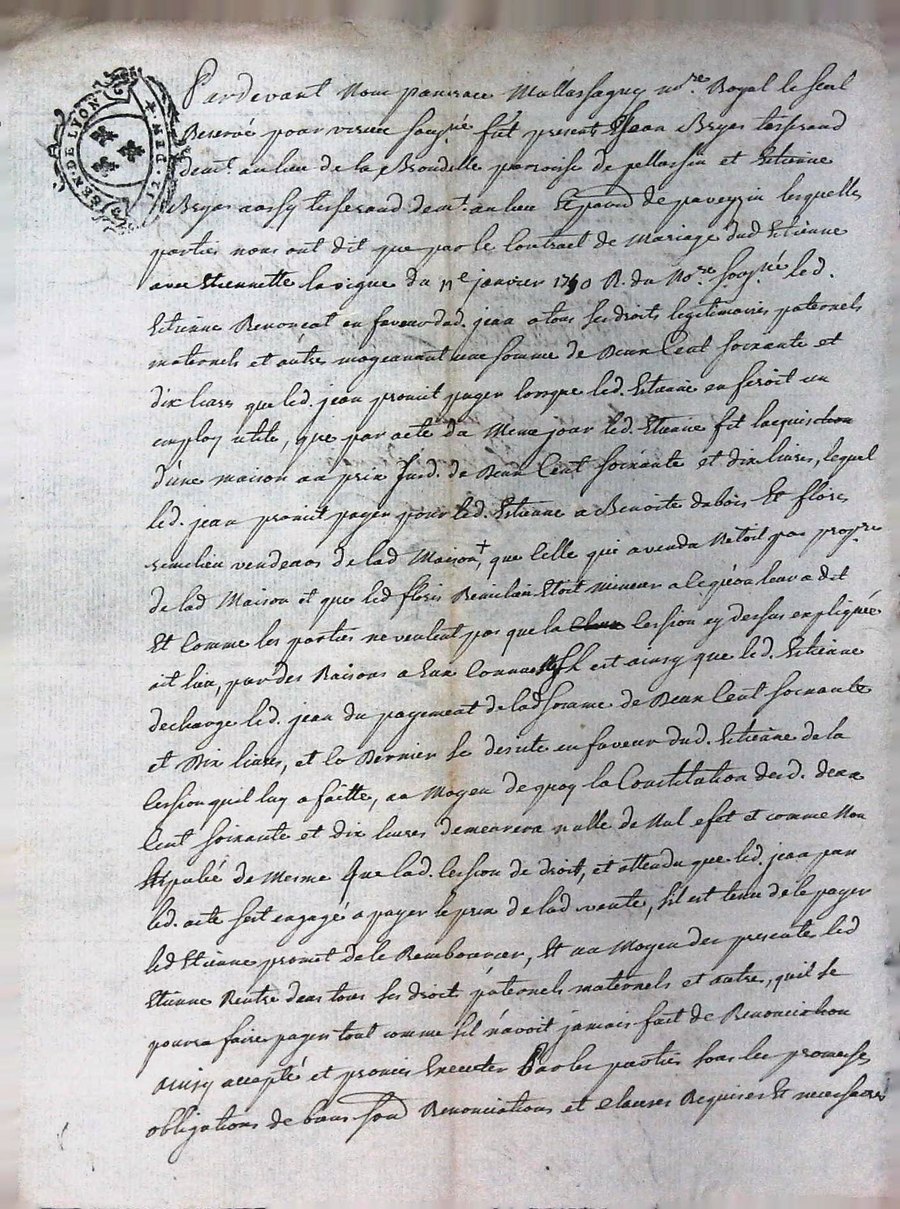 GEN. DE LYON
MED. 2 S
Pardevant Nous pancrace Mallassagny no.re Royal le seul
Reservé pour vireieu sousg.né fût present Jean Bryas tisserand
dem.t au lieu de la Bourdelle parroisse de pellussin et Etienne
Bryas aussy tisserand dem.t au lieu Et parr.d de paveyzin lesquelles
parties nous ont dit que par le Contract de Mariage dud Etienne
avec Etiennette lavigne du 11e janvier 1760 R. du No.re sousg.né led.
Etienne Renonçat en faveur dud. jean a tous ses droits legitimaires paternels
maternels et autre mogeanant une somme de Deux Cent soixante et
dix livres que led. jean promit payer lorsque led. Etienne en feroit un
employ utile, que par acte du Meme jour led. Etienne fit laquisition
d'une maison au prix jusd. de Deux Cent soixante et dix livres, lequel
led. jean promit payer pour led. Etienne a Benoite dubois Et floris
vendeurs de lad Maison+, que celle qui a vendu N'etoit pas propre
de lad Maison et que led floris Etoit Mineur a le qu'on leur a dit
Et Comme les parties ne veulent pas que la Cession cy dessus expliquée
ait lieu, par des Raisons a Eux Connues Il est ainsy que led. Etienne
decharge led. jean du payement de lad somme de Deux Cent soixante
et Dix livres, et ce Dernier se desiste en faveur dud. Etienne de la
Cession quil luy a faitte, au Moyen de quoy la Constitution desd. deux
Cent soixante et dix livres demeurera nulle de Nul efet et comme Non
stipulée de Mesme Que lad. Cession de droit, et attendu que led. jean par
led. acte sest engagé a payer le prix de lad vente, sil est tenu de le payer
led Etienne promet de le Rembourcer, Et au Moyen des presente led
Etienne Rentre dans tous ses droits paternels maternels et autre, quil se
pourra faire payer tout comme sil n'avoit jamais fait de Renonciation
ainsy accepté et promis Executer Par les parties sous les promesses
obligations de biens soud Renonciations et clauses Requises Et necessaires